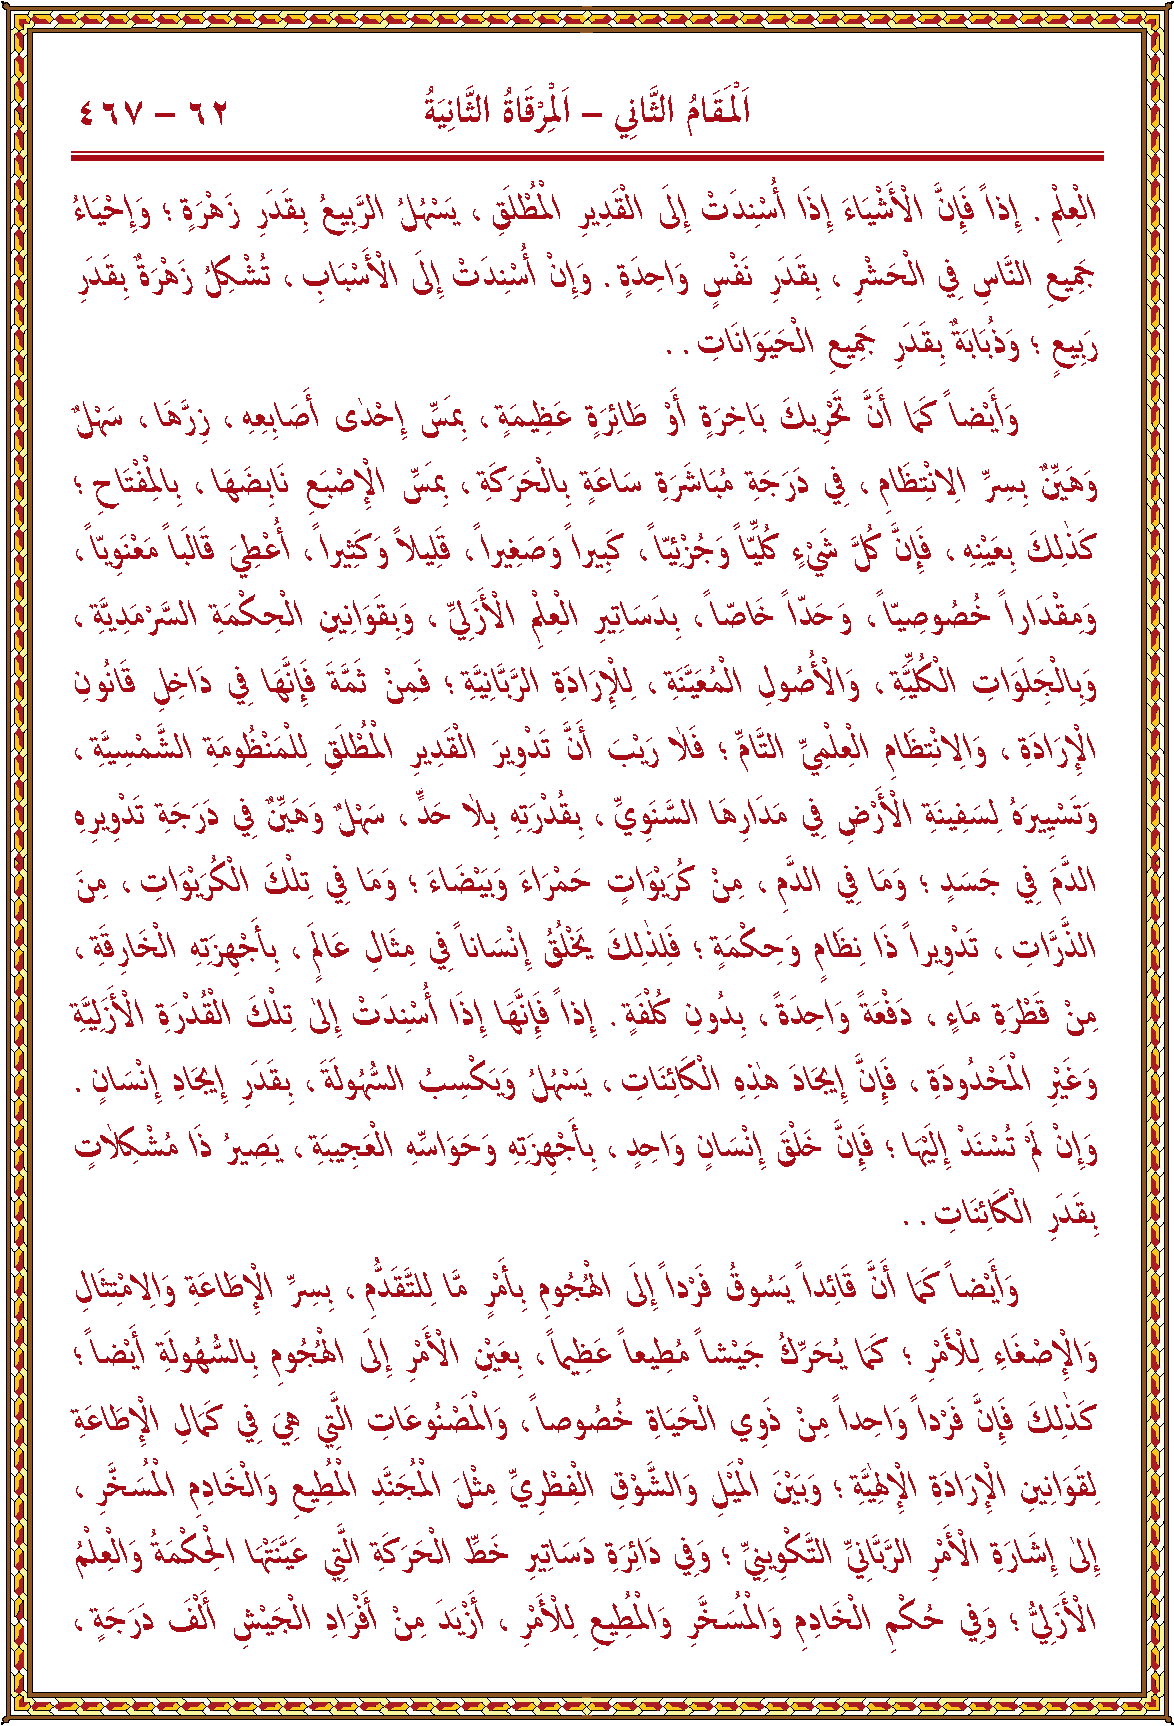 اَلْمَقَامُ الثَّانِي – اَلْمِرْقَاةُ الثَّانِيَةُ ٦٢ – ٤٦٧
الْعِلْمِ . إِذاً فَإِنَّ الْأَشْيَاءَ إِذَا أُسْنِدَتْ إِلَى الْقَدِيرِ الْمُطْلَقِ ، يَسْهُلُ الرَّبِيعُ بِقَدَرِ زَهْرَةٍ ؛ وَإِحْيَاءُ
جَمِيعِ النَّاسِ فِي الْحَشْرِ ، بِقَدَرِ نَفْسٍ وَاحِدَةٍ . وَإِنْ أُسْنِدَتْ إِلَى الْأَسْبَابِ ، تُشْكِلُ زَهْرَةٌ بِقَدَرِ
رَبِيعٍ ؛ وَذُبَابَةٌ بِقَدَرِ جَمِيعِ الْحَيَوَانَاتِ . .
وَأَيْضاً كَمَا أَنَّ تَحْرِيكَ بَاخِرَةٍ أَوْ طَائِرَةٍ عَظِيمَةٍ ، بِمَسِّ إِحْدٰى أَصَابِعِهِ ، زِرَّهَا ، سَهْلٌ
وَهَيِّنٌ بِسِرِّ الِانْتِظَامِ ، فِي دَرَجَةِ مُبَاشَرَةِ سَاعَةٍ بِالْحَرَكَةِ ، بِمَسِّ الْإِصْبَعِ نَابِضَهَا ، بِالْمِفْتَاحِ ؛
كَذٰلِكَ بِعَيْنِهِ ، فَإِنَّ كُلَّ شَيْءٍ كُلِّيّاً وَجُزْئِيّاً ، كَبِيراً وَصَغِيراً ، قَلِيلاً وَكَثِيراً ، أُعْطِيَ قَالَباً مَعْنَوِيّاً ،
وَمِقْدَاراً خُصُوصِيّاً ، وَحَدّاً خَاصّاً ، بِدَسَاتِيرِ الْعِلْمِ الْأَزَلِيِّ ، وَبِقَوَانِينِ الْحِكْمَةِ السَّرْمَدِيَّةِ ،
وَبِالْجَلَوَاتِ الْكُلِّيَّةِ ، وَالْأُصُولِ الْمُعَيَّنَةِ ، لِلْإِرَادَةِ الرَّبَّانِيَّةِ ؛ فَمِنْ ثَمَّةَ فَإِنَّهَا فِي دَاخِلِ قَانُونِ
الْإِرَادَةِ ، وَالِانْتِظَامِ الْعِلْمِيِّ التَّامِّ ؛ فَلَا رَيْبَ أَنَّ تَدْوِيرَ الْقَدِيرِ الْمُطْلَقِ لِلْمَنْظُومَةِ الشَّمْسِيَّةِ ،
وَتَسْيِيرَهُ لِسَفِينَةِ الْأَرْضِ فِي مَدَارِهَا السَّنَوِيِّ ، بِقُدْرَتِهِ بِلَا حَدٍّ ، سَهْلٌ وَهَيِّنٌ فِي دَرَجَةِ تَدْوِيرِهِ
الدَّمَ فِي جَسَدٍ ؛ وَمَا فِي الدَّمِ ، مِنْ كُرَيْوَاتٍ حَمْرَاءَ وَبَيْضَاءَ ؛ وَمَا فِي تِلْكَ الْكُرَيْوَاتِ ، مِنَ
الذَّرَّاتِ ، تَدْوِيراً ذَا نِظَامٍ وَحِكْمَةٍ ؛ فَلِذٰلِكَ يَخْلُقُ إِنْسَاناً فِي مِثَالِ عَالَمٍ ، بِأَجْهِزَتِهِ الْخَارِقَةِ ،
مِنْ قَطْرَةِ مَاءٍ ، دَفْعَةً وَاحِدَةً ، بِدُونِ كُلْفَةٍ . إِذاً فَإِنَّهَا إِذَا أُسْنِدَتْ إِلٰى تِلْكَ الْقُدْرَةِ الْأَزَلِيَّةِ
وَغَيْرِ الْمَحْدُودَةِ ، فَإِنَّ إِيجَادَ هٰذِهِ الْكَائِنَاتِ ، يَسْهُلُ وَيَكْسِبُ السُّهُولَةَ ، بِقَدَرِ إِيجَادِ إِنْسَانٍ .
وَإِنْ لَمْ تُسْنَدْ إِلَيْهَا ؛ فَإِنَّ خَلْقَ إِنْسَانٍ وَاحِدٍ ، بِأَجْهِزَتِهِ وَحَوَاسِّهِ الْعَجِيبَةِ ، يَصِيرُ ذَا مُشْكِلَاتٍ
بِقَدَرِ الْكَائِنَاتِ . .
وَأَيْضاً كَمَا أَنَّ قَائِداً يَسُوقُ فَرْداً إِلَى الْهُجُومِ بِأَمْرٍ مَّا لِلتَّقَدُّمِ ، بِسِرِّ الْإِطَاعَةِ وَالِامْتِثَالِ
وَالْإِصْغَاءِ لِلْأَمْرِ ؛ كَمَا يُحَرِّكُ جَيْشاً مُطِيعاً عَظِيماً ، بِعَيْنِ الْأَمْرِ إِلَى الْهُجُومِ بِالسُّهُولَةِ أَيْضاً ؛
كَذٰلِكَ فَإِنَّ فَرْداً وَاحِداً مِنْ ذَوِي الْحَيَاةِ خُصُوصاً ، وَالْمَصْنُوعَاتِ الَّتِي هِيَ فِي كَمَالِ الْإِطَاعَةِ
لِقَوَانِينِ الْإِرَادَةِ الْإِلٰهِيَّةِ ؛ وَبَيْنَ الْمَيْلِ وَالشَّوْقِ الْفِطْرِيِّ مِثْلَ الْمُجَنَّدِ الْمُطِيعِ وَالْخَادِمِ الْمُسَخَّرِ ،
إِلٰى إِشَارَةِ الْأَمْرِ الرَّبَّانِيِّ التَّكْوِينِيِّ ؛ وَفِي دَائِرَةِ دَسَاتِيرِ خَطِّ الْحَرَكَةِ الَّتِي عَيَّنَتْهَا الْحِكْمَةُ وَالْعِلْمُ
الْأَزَلِيُّ ؛ وَفِي حُكْمِ الْخَادِمِ وَالْمُسَخَّرِ وَالْمُطِيعِ لِلْأَمْرِ ، أَزْيَدَ مِنْ أَفْرَادِ الْجَيْشِ أَلْفَ دَرَجَةٍ ،